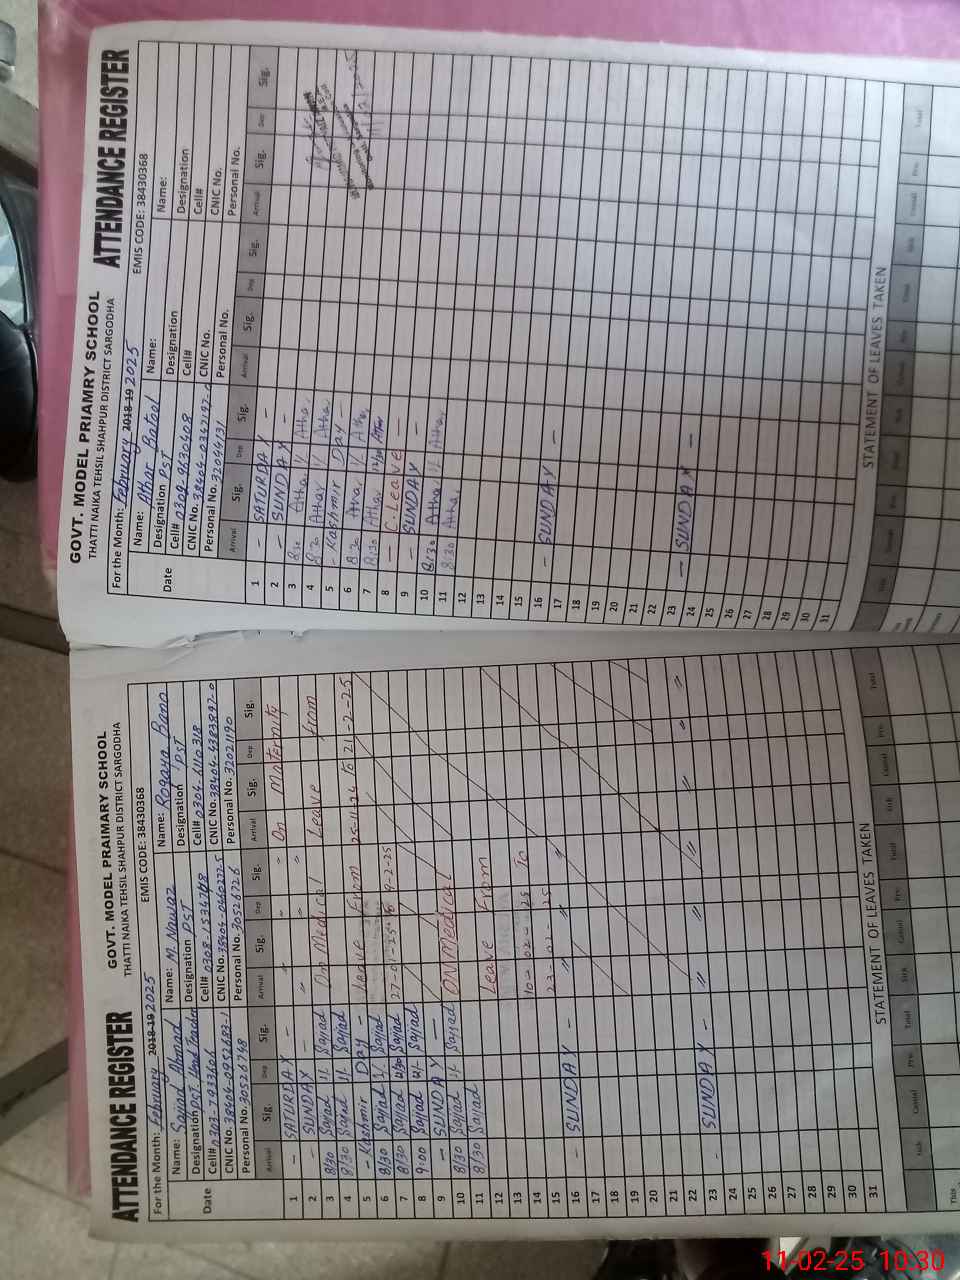 ATTENDANCE REGISTER
GOVT. MODEL PRAIMARY SCHOOL
THATTI NAIKA TEHSIL SHAHPUR DISTRICT SARGODHA
For the Month: February 2018-19 2025
EMIS CODE: 38430368
Name: Sajjad Ahmad Name: M. Nawaz Name: Roqaya Bano
Designation PST Head Teacher Designation PST Designation PST
Cell# 0303-7933606 Cell# 0308-1534708 Cell# 0304-6110318
CNIC No. 38404-0952683-1 CNIC No. 38404-0460272-5 CNIC No. 38404-4383897-0
Personal No. 30526748 Personal No. 30526726 Personal No. 32021190
Date Arrival Sig. Dep Sig. Arrival Sig. Dep Sig. Arrival Sig. Dep Sig.
1 - SATURDAY - On Maternity
2 - SUNDAY -
3 8/30 Sajjad 1/- Sajjad On Medical Leave From
4 8/30 Sajjad 1/- Sajjad
5 - Kashmir Day - Leave From 25-11-24 To 21-2-25
6 8/30 Sajjad 1/- Sajjad
7 8/30 Sajjad 12/30 Sajjad 27-01-25 to 9-2-25
8 9:00 Sajjad 1/- Sajjad
9 - SUNDAY -
10 8/30 Sajjad 1/- Sajjad ON Medical
11 8/30 Sajjad
12 Leave From
13
14 10-02-25 To
15 23-02-25
16 - SUNDAY - " " "
17
18
19
20
21
22
23 - SUNDAY - " " " " " "
24
25
26
27
28
29
30
31
STATEMENT OF LEAVES TAKEN
Sick Casual Prv. Total Sick Casual Prv. Total Sick Casual Prv. Total
This
GOVT. MODEL PRIAMRY SCHOOL
ATTENDANCE REGISTER
THATTI NAIKA TEHSIL SHAHPUR DISTRICT SARGODHA
For the Month: February 2018-19 2025
EMIS CODE: 38430368
Name: Athar Batool Name: Name:
Designation PST Designation Designation
Cell# 0309-9630408 Cell# Cell#
CNIC No. 38404-0347197- CNIC No. CNIC No.
Personal No. 32044131 Personal No. Personal No.
Date Arrival Sig. Dep Sig. Arrival Sig. Dep Sig. Arrival Sig. Dep Sig.
1 - SATURDAY -
2 - SUNDAY -
3 8:30 Athar 1/- Athar
4 8:30 Athar 1/- Athar
5 - Kashmir Day -
6 8:30 Athar 1/- Athar
7 8:30 Athar 12/30 Athar
8 - C-Leave -
9 - SUNDAY -
10 8:30 Athar 1/- Athar
11 8:30 Athar
12
13
14
15
16 - SUNDAY -
17
18
19
20
21
22
23 - SUNDAY -
24
25
26
27
28
29
30
31
STATEMENT OF LEAVES TAKEN
11-02-25 10:30